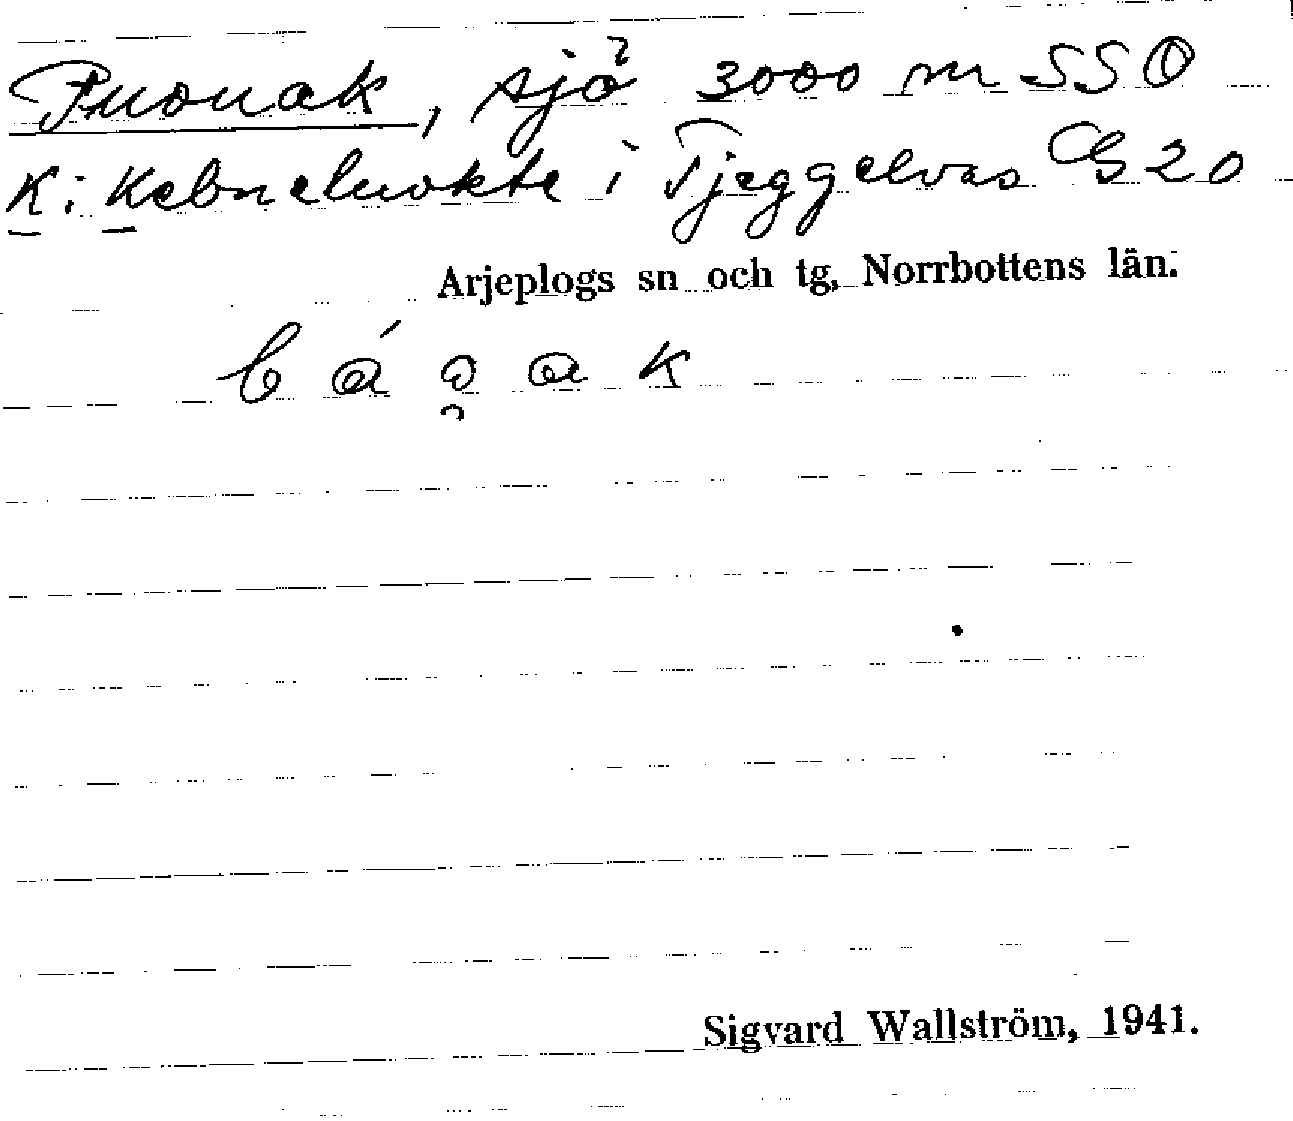 Puonak, sjö 3000 m SSO
K: Kebneluokte i Tjeggelvas G 20
Arjeplogs sn och tg, Norrbottens län.
Sigvard Wallström, 1941.